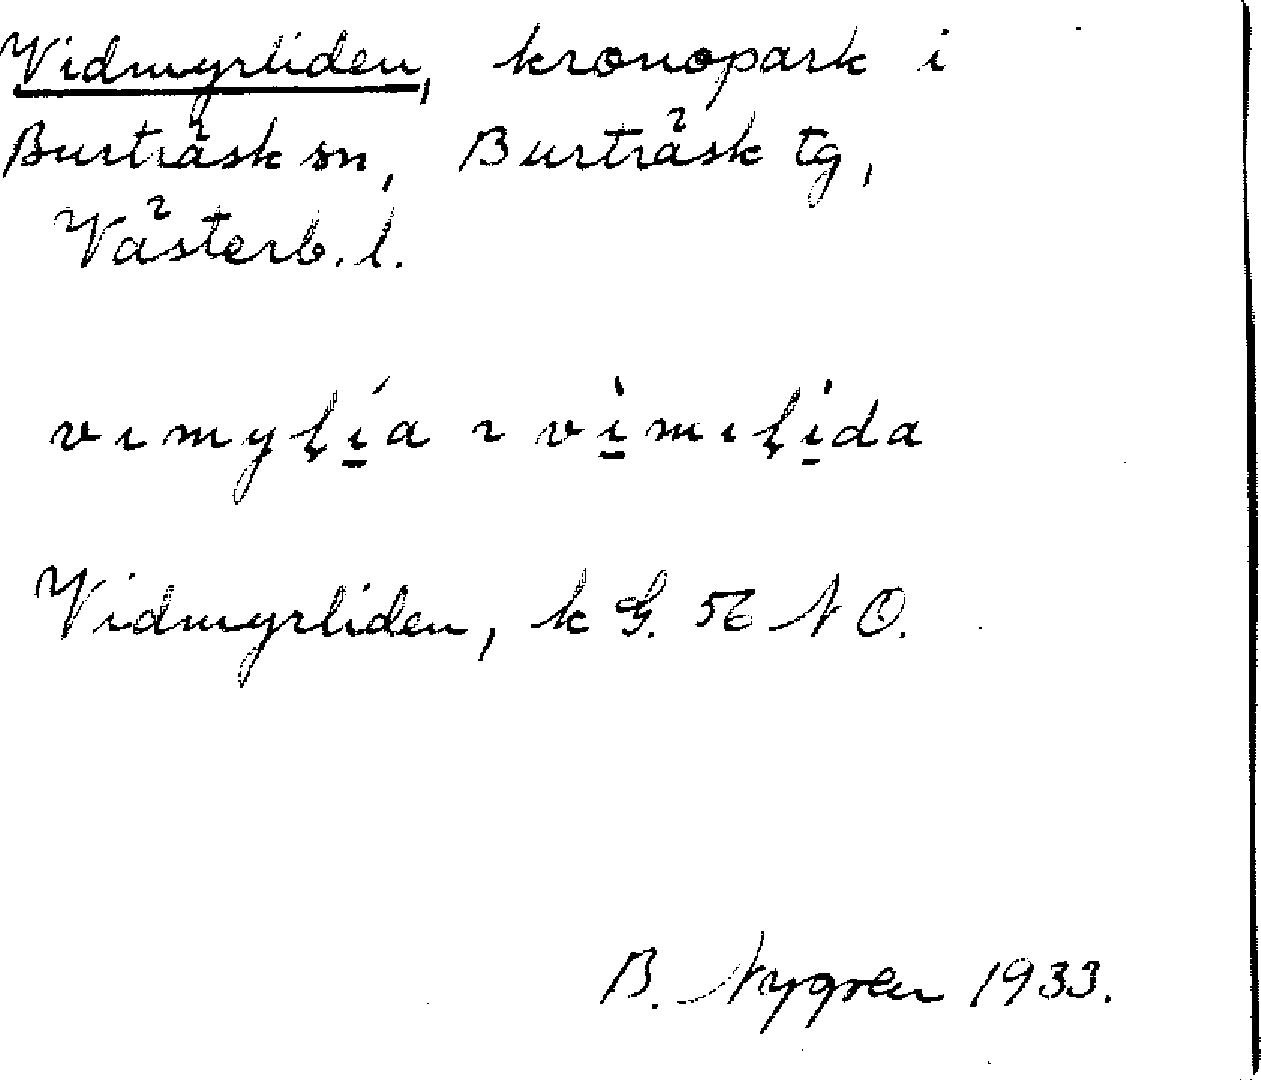 Vidmyrliden, kronopark i
Burträsk sn, Burträsk tg,
Västerb. l.
Vidmyrliden, k G. 56 N O.
B. Nygren 1933.